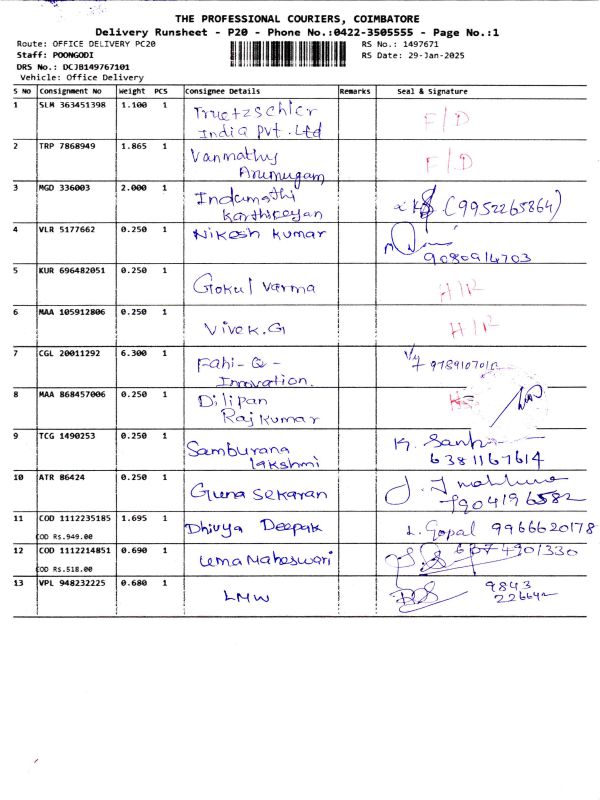 THE PROFESSIONAL COURIERS, COIMBATORE
Delivery Runsheet - P20 - Phone No.:0422-3505555 - Page No.:1
Route: OFFICE DELIVERY PC20 RS No.: 1497671
Staff: POONGODI RS Date: 29-Jan-2025
DRS No.: DCJB149767101
Vehicle: Office Delivery
S No Consignment No Weight PCS Consignee Details Remarks Seal & Signature
1 SLM 363451398 1.100 1 Truetzschler F/D
India Pvt.Ltd
2 TRP 7868949 1.865 1 Vanmathy F/D
Arumugam
3 MGD 336003 2.000 1 Indumathi (9952265864)
Karthikeyan
4 VLR 5177662 0.250 1 Nikesh Kumar
9080914703
5 KUR 696482051 0.250 1 Gokul Varma H/R
6 MAA 105912806 0.250 1 Vivek.G H/R
7 CGL 20011292 6.300 1 Fahi-G-
Innovation.
8 MAA 868457006 0.250 1 Dilipan
Raj Kumar
9 TCG 1490253 0.250 1 Samburana
lakshmi 6381167614
10 ATR 86424 0.250 1 Guna Sekaran 7904196582
11 COD 1112235185 1.695 1 Dhivya Deepak L. Gopal 9966620178
COD Rs.949.00
12 COD 1112214851 0.690 1 Uma Maheswari
COD Rs.518.00
13 VPL 948232225 0.680 1 LMW 9843